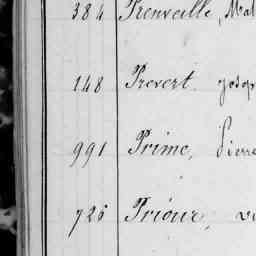 384 Prenveille, Mat
148 Prevert. Josep
991 Prime, Pierre
728 Prioux, Ve